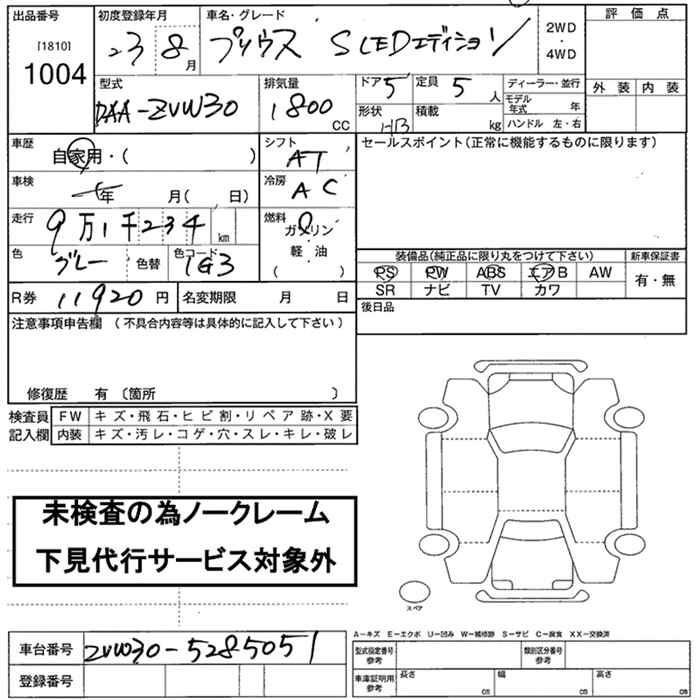 出品番号 初度登録年月 車名・グレード 2WD ・ 4WD 評価点
[1810]
1004 23 8月 プリウス S LEDエディション
型式 排気量 ドア 5 定員 5人 ディーラー・並行 外装 内装
DAA-ZVW30 1800 CC 形状 HB 積載 kg モデル年式 年
ハンドル 左・右
車歴 自家用・( ) シフト AT セールスポイント(正常に機能するものに限ります)
車検 年 月( 日) 冷房 AC
走行 9万1千234 km 燃料 ガソリン
軽・油
( )
色 グレー 色替 色コード 1G3 装備品(純正品に限り丸をつけて下さい) 新車保証書
PS PW ABS エアB AW 有・無
SR ナビ TV カワ
R券 11920円 名変期限 月 日 後日品
注意事項申告欄 (不具合内容等は具体的に記入して下さい)
修復歴 有 〔箇所 〕
検査員 FW キズ・飛石・ヒビ割・リペア跡・X要
記入欄 内装 キズ・汚レ・コゲ・穴・スレ・キレ・破レ
未検査の為ノークレーム
下見代行サービス対象外
スペア
A-キズ E-エクボ U-凹み W-補修跡 S-サビ C-腐食 XX-交換済
車台番号 ZVW30-5285051 型式指定番号 参考 類別区分番号 参考
登録番号 車庫証明用 参考 長さ cm 幅 cm 高さ cm